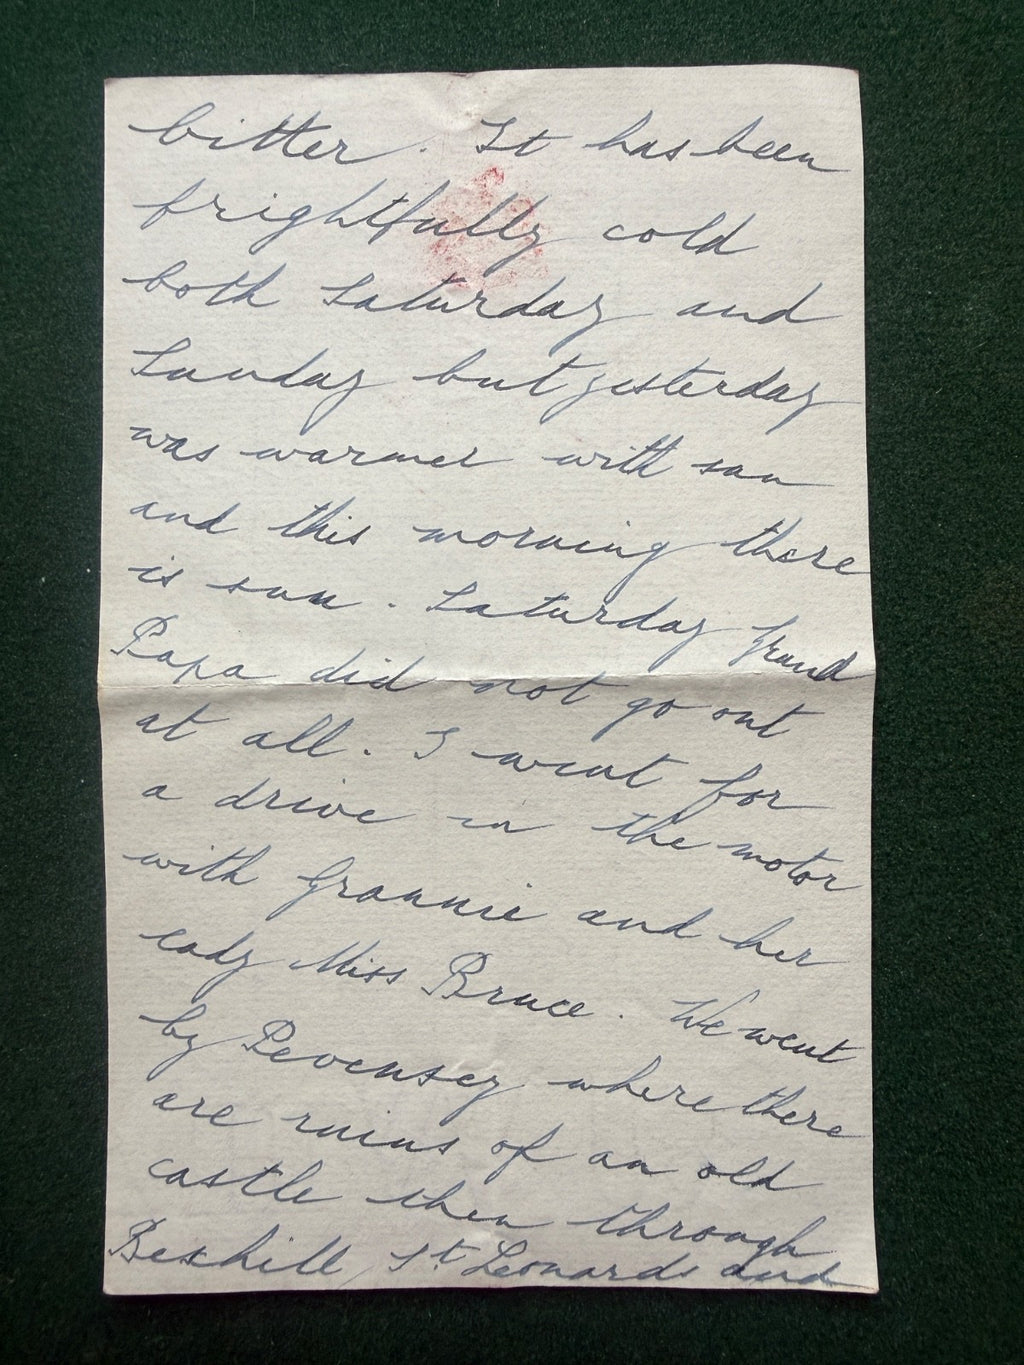 bitter. It has been
frightfully cold
both Saturday and
Sunday but yesterday
was warmer with sun
and this morning there
is sun. Saturday Grand
Papa did not go out
at all. I went for
a drive in the motor
with Grannie and her
lady Miss Bruce. We went
by Pevensey where there
are ruins of an old
castle then through
Bexhill, St Leonards and